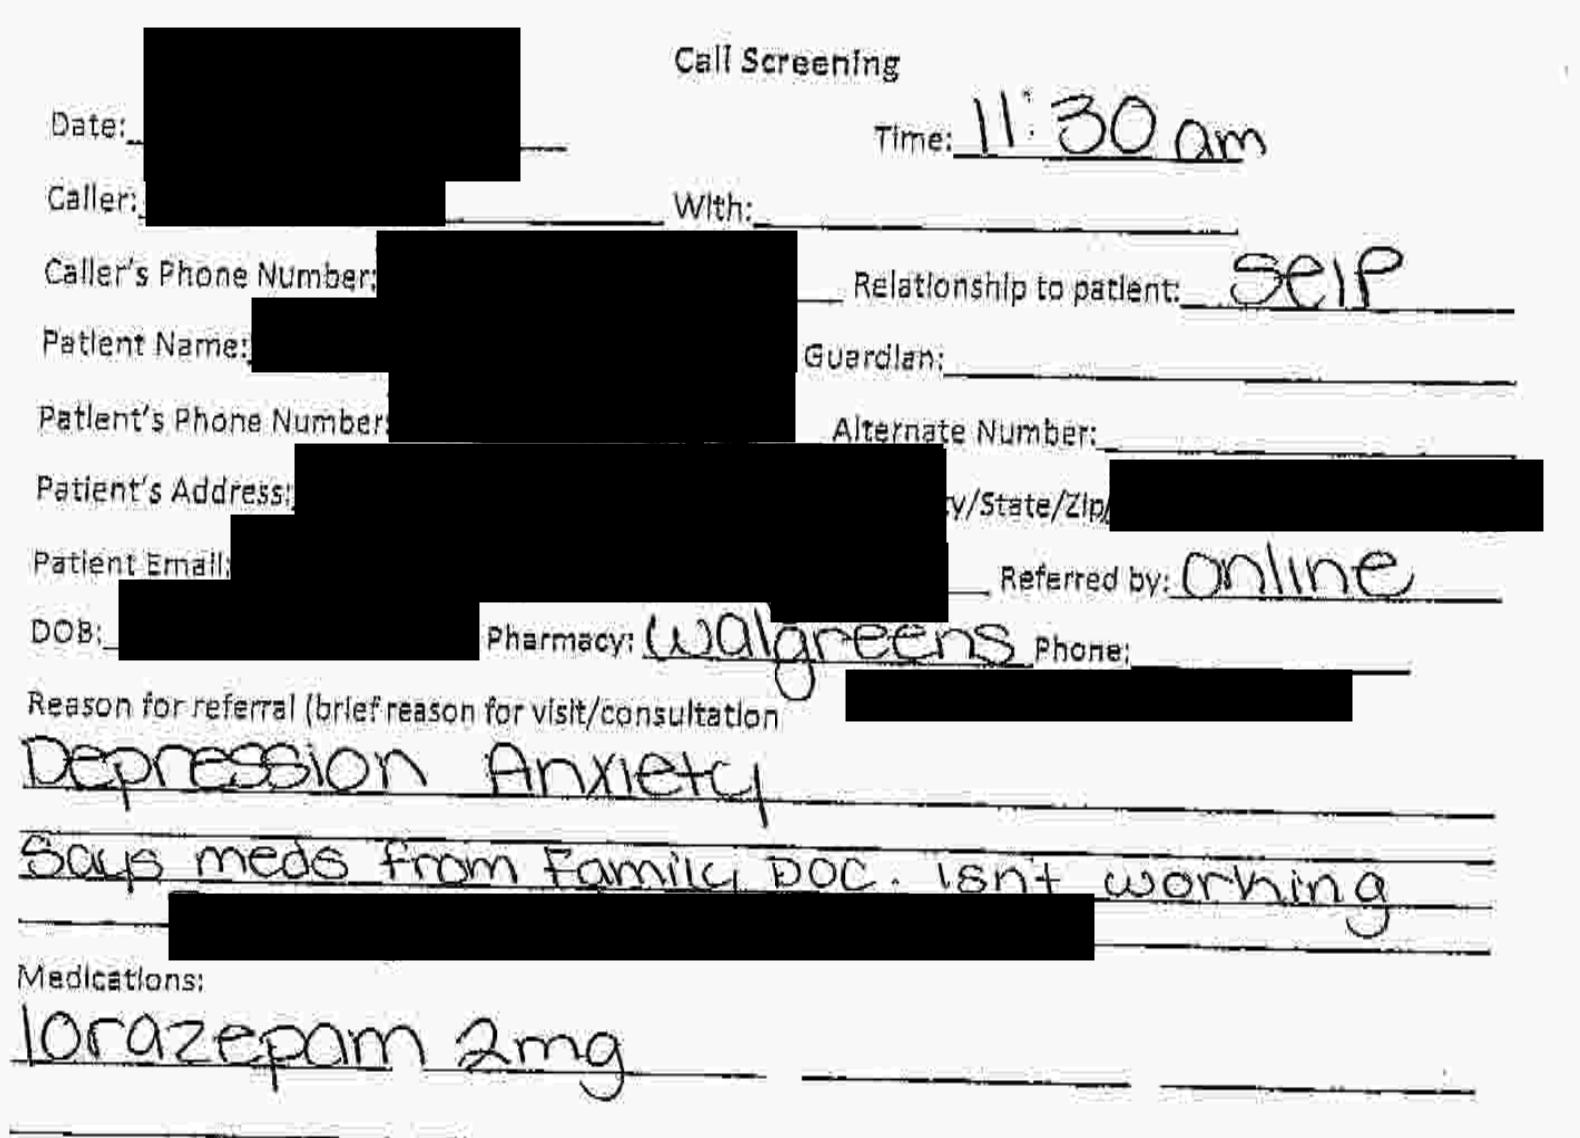 Call Screening
Date: Time: 11:30 am
Caller: With:
Caller's Phone Number: Relationship to patient: self
Patient Name: Guardian:
Patient's Phone Number: Alternate Number:
Patient's Address: y/State/Zip
Patient Email: Referred by: online
DOB: Pharmacy: walgreens Phone:
Reason for referral (brief reason for visit/consultation
Depression Anxiety
Says meds from Family DOC. isnt working
Medications:
lorazepam 2mg